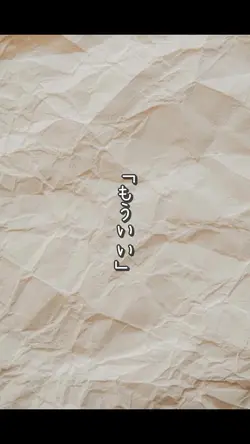 「もういい」